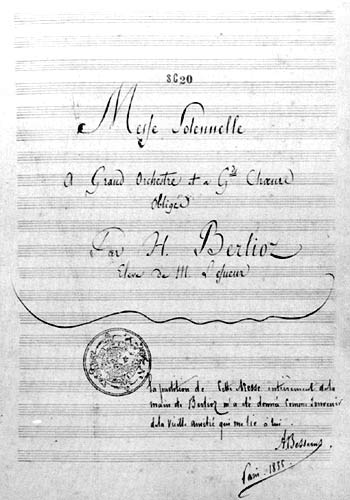 SG20
Messe Solennelle
A Grand Orchestre et a Gds Chœurs
Obligés
Par H. Berlioz
Eleve de M. Lesueur
La partition de Cette Messe entièrement de la
main de Berlioz m'a été donnée comme souvenir
de la vieille amitié qui me lie à lui.
A Bessems
Paris 1835